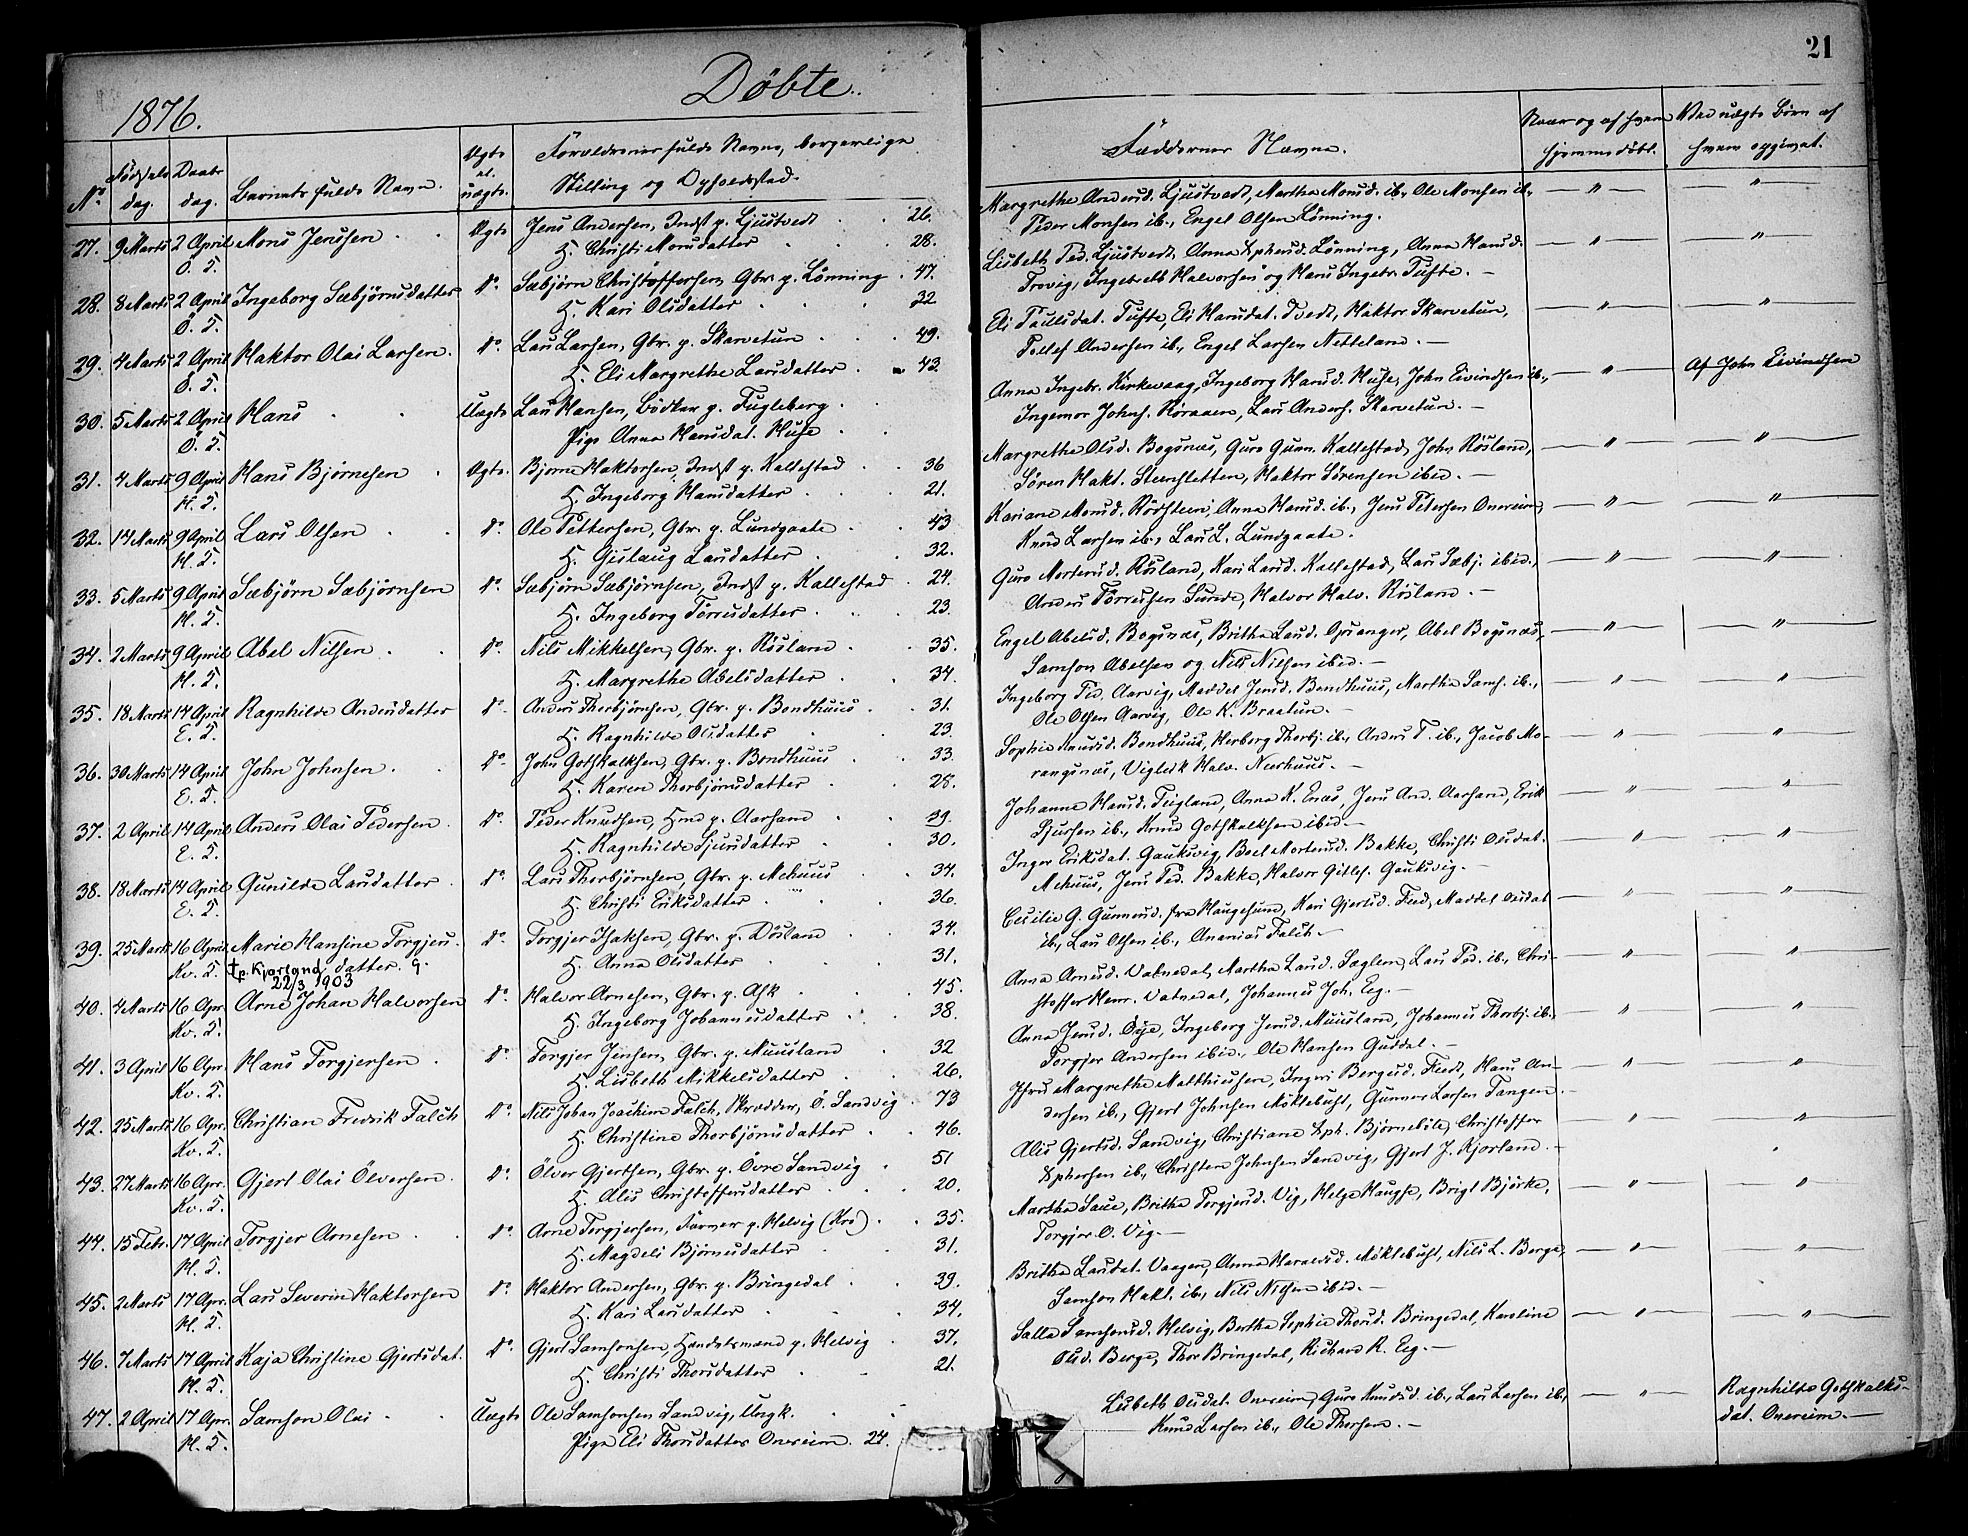 21
Döbte.
1876.
No
Födsels dag.
Daabs dag.
Barnets fulde Navn.
Ægte el. uægte.
Forældrenes fulde Navne, borgerlige
Stilling og Opholdssted.
Faddernes Navne.
Naar og af hvem
hjemmedöbt.
Ved uægte Börn af
hvem opgivet.
27. 9 Marts 2 April Mons Jensen Ægte Jens Andersen, Indst p. Ljustvedt 26.
Ö. T. H. Christi Monsdatter 28.
Margrethe Andersd. Ljustvedt, Martha Monsd. ib., Ole Monsen ib.,
Peder Monsen ib., Engel Olsen Lönning.
28. 8 Marts 2 April Ingeborg Sæbjörnsdatter do Sæbjörn Christoffersen, Gbr. p. Lönning 47.
Ö. T. H. Kari Olsdatter 32
Lisbeth Ped. Ljustvedt, Anna Xphersd. Lönning, Anna Hansd.
Trovig, Ingebreth Halvorsen og Hans Ingebr. Tufte.
29. 4 Marts 2 April Haktor Olai Larsen. do Lars Larsen, Gbr. p. Skarvetun 49.
Ö. T. H. Eli Margrethe Larsdatter 43
Eli Paulsdat. Tufte, Eli Hansdat. Tvedt, Haktor Skarvetun,
Tollef Andersen ib., Engel Larsen Netteland.
30. 5 Marts 2 April Hans Uægte Lars Hansen, Bödker p. Fugleberg
Ö. T. Pige Anna Hansdat. Huse
Anna Ingebr. Kirkevaag, Ingeborg Hansd. Huse, John Eivindsen ib.,
Ingemor Johns. Röraaen, Lars Anders. Skarvetun.
Af John Eivindsen
31. 4 Marts 9 April Hans Björnesen Ægte. Bjorne Haktorsen, Indst p. Kallestad 36
H. T. H. Ingeborg Hansdatter 21.
Margrethe Olsd. Bogsnæs, Guro Gunn. Kallestad, John Rösland,
Sören Hakt. Steensletten, Haktor Sörensen ibid.
32. 14 Marts 9 April Lars Olsen do Ole Pettersen, Gbr. p. Lundgaate 43
H. T. H. Gislaug Larsdatter 32.
Kariane Monsd. Rödstein, Anna Hansd. ib., Jens Petersen Onereim,
Knud Larsen ib., Lars L. Lundgaate.
33. 5 Marts 9 April Sæbjörn Sæbjörnsen do Sæbjörn Sæbjörnsen, Indst p. Kallestad 24.
H. T. H. Ingeborg Törresdatter 23.
Guro Mortensd. Rösland, Kari Larsd. Kallestad, Lars Sæbj. ibid.,
Anders Törresen Sunde, Halvor Halv. Rösland.
34. 2 Marts 9 April Abel Nilsen do Nils Mikkelsen, Gbr. p. Rösland 35.
H. T. H. Margrethe Abelsdatter 34.
Engel Abelsd. Bogsnæs, Britha Larsd. Opsanger, Abel Bogsnæs,
Samson Abelsen og Nils Nilsen ibid.
35. 18 Marts 14 April Ragnhilde Andersdatter do Anders Thorbjörnsen, Gbr. p. Bondhuus 31.
E. T. H. Ragnhilde Olsdatter 23.
Ingeborg Ped. Aarvig, Maddel Jensd. Bondhuus, Martha Sams. ib.,
Ole Olsen Aarvig, Ole K. Braatun.
36. 30 Marts 14 April John Johnsen do John Gotskalksen, Gbr. p. Bondhuus 33.
E. T. H. Karen Thorbjörnsdatter 28.
Sophie Knudsd. Bondhuus, Herborg Thorbj. ib., Anders T. ib., Jacob Mo-
rangsnæs, Viglerk Halv. Neerhuus.
37. 2 April 14 April Anders Olai Pedersen do Peder Knudsen, Hmd p. Aarsand 29.
E. T. H. Ragnhilde Sjursdatter 30.
Johanne Hansd. Teigland, Anna K. Enæs, Jens And. Aarsand, Erik
Sjursen ib., Knud Gotskalksen ibid.
38. 18 Marts 14 April Gunilde Larsdatter do Lars Thorbjörnsen, Gbr. p. Mehuus 34.
E. T. H. Christi Eriksdatter 36.
Inger Eriksdat. Gauksvig, Boel Mortensd. Bakke, Christi Olsdat.
Mehuus, Jens Ped. Bakke, Halvor Gitles. Gauksvig.
39. 25 Marts 16 April Marie Hansine Torgjers- do Torgjer Isaksen, Gbr. p. Dösland 34.
Kv. T. †p. Kjorland datter. G. H. Anna Olsdatter 31.
22/3 1903
Cecilie G. Gunnersd. fra Haugesund, Kari Gjertsd. Feed, Maddel Olsdat
ib., Lars Olsen ib., Ananias Falch.
40. 4 Marts 16 Apr. Arne Johan Halvorsen do Halvor Arnesen, Gbr. p. Ask 45.
Kv. T. H. Ingeborg Johannesdatter 38.
Anna Arnesd. Vatnedal, Martha Larsd. Sæglem, Lars Ped. ib., Chri-
stoffer Henr. Vatnedal, Johannes Joh. Eeg.
41. 3 April 16 Apr. Hans Torgjersen do Torgjer Jensen, Gbr. p. Muusland 32
Kv. T. H. Lisbeth Mikkelsdatter 26.
Anna Jensd. Öye, Ingeborg Jensd. Muusland, Johannes Thorbj. ib.,
Torgjer Andersen ibid., Ole Hansen Guddal.
42. 25 Marts 16 Apr. Christian Fredrik Falch do Nils Johan Joachim Falch, Skrædder, Ö. Sandvig 73
Kv. T. H. Christine Thorbjörnsdatter 46.
Jfru Margrethe Matthiesen, Inger Bergesd. Feet, Hans An-
dersen ib., Gjert Johnsen Möklebust, Gunner Larsen Tangen.
43. 27 Marts 16 Apr. Gjert Olai Ölversen do Ölver Gjertsen, Gbr. p. Övre Sandvig 51
Kv. T. H. Alis Christoffersdatter 20.
Alis Gjertsd. Sandvig, Christiane Xph. Björneböle, Christoffer
Xphersen ib., Christen Johnsen Sandvig, Gjert J. Kjorland.
44. 15 Febr. 17 April Torgjer Arnesen do Arne Torgjersen, Farmer p. Helvig (Kro) 35.
H. T. H. Magdeli Björnesdatter 31.
Martha Saue, Britha Torgjersd. Vig, Helge Haugse, Brigt Björke,
Torgjer O. Vig.
45. 2 Marts 17 Apr. Lars Severin Haktorsen do Haktor Andersen, Gbr. p. Bringedal 39.
H. T. H. Kari Larsdatter 34.
Britha Larsdat. Vaagen, Anna Haraldsd. Möklebust, Nils L. Berge,
Samson Hakt. ib., Nils Nilsen ibid.
46. 7 Marts 17 April Kaja Christine Gjertsdat. do Gjert Samsonsen, Handelsmand p. Helvig 37.
H. T. H. Christi Thorsdatter 21.
Salla Samsonsd. Helvig, Bertha Sophie Thorsd. Bringedal, Karoline
Olsd. Berge, Thor Bringedal, Richard R. Eeg.
47. 2 April 17 Apr. Samson Olai Uægte Ole Samsonsen Sandvig, Ungk.
H. T. Pige Eli Thorsdatter Onereim. 24.
Lisbeth Olsdat. Onereim, Guro Knudsd. ib., Lars Larsen ib.,
Knud Larsen ib., Ole Thorsen.
Ragnhilde Gotskalks-
dat. Onereim.